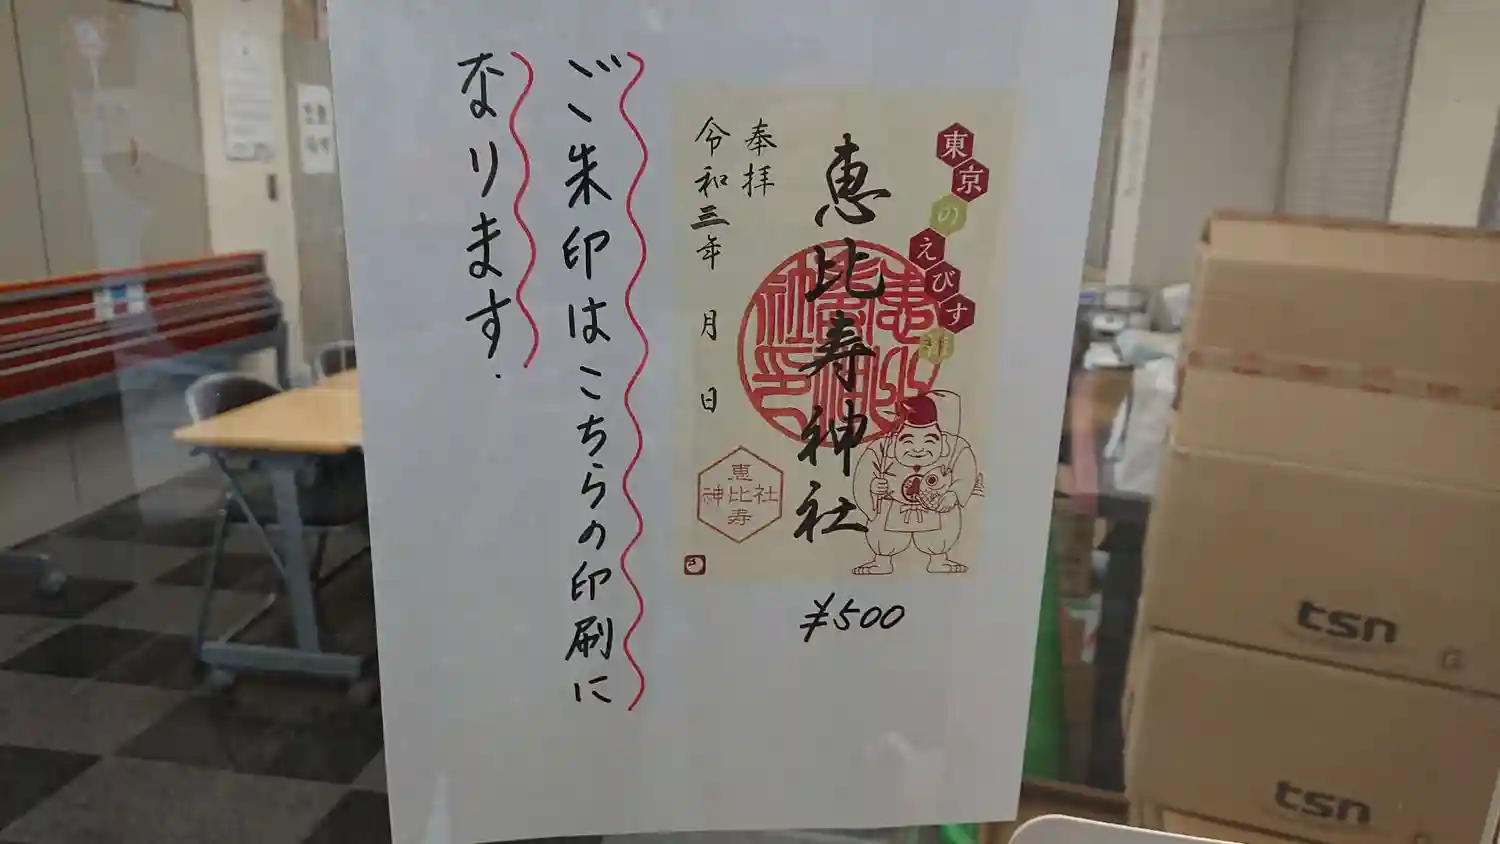 東京のえびす様
恵比寿神社
奉拝
令和三年 月 日
恵比寿神社
¥500
ご朱印はこちらの印刷に
なります.
tsn
tsn